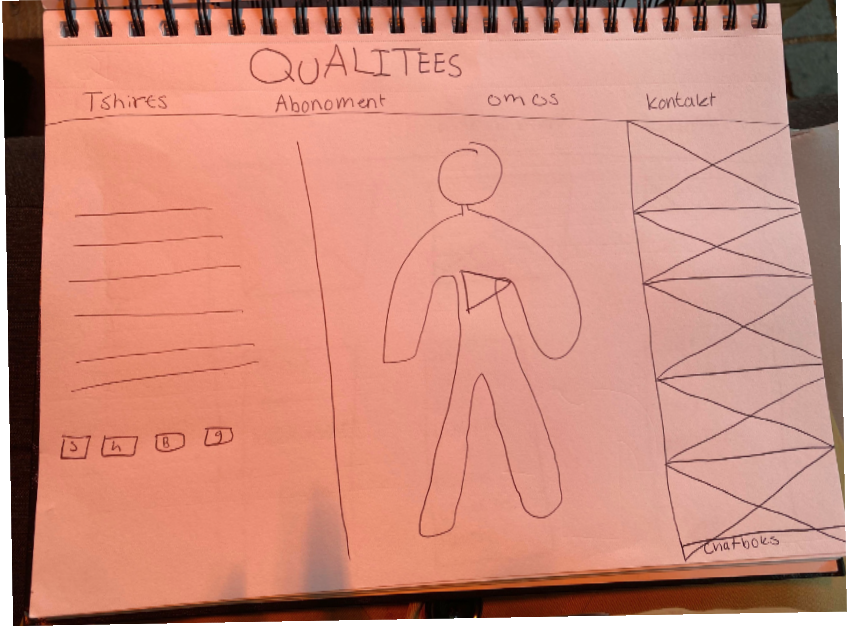 QUALITEES
Tshires Abonoment om os kontakt
S h B g
chatboks